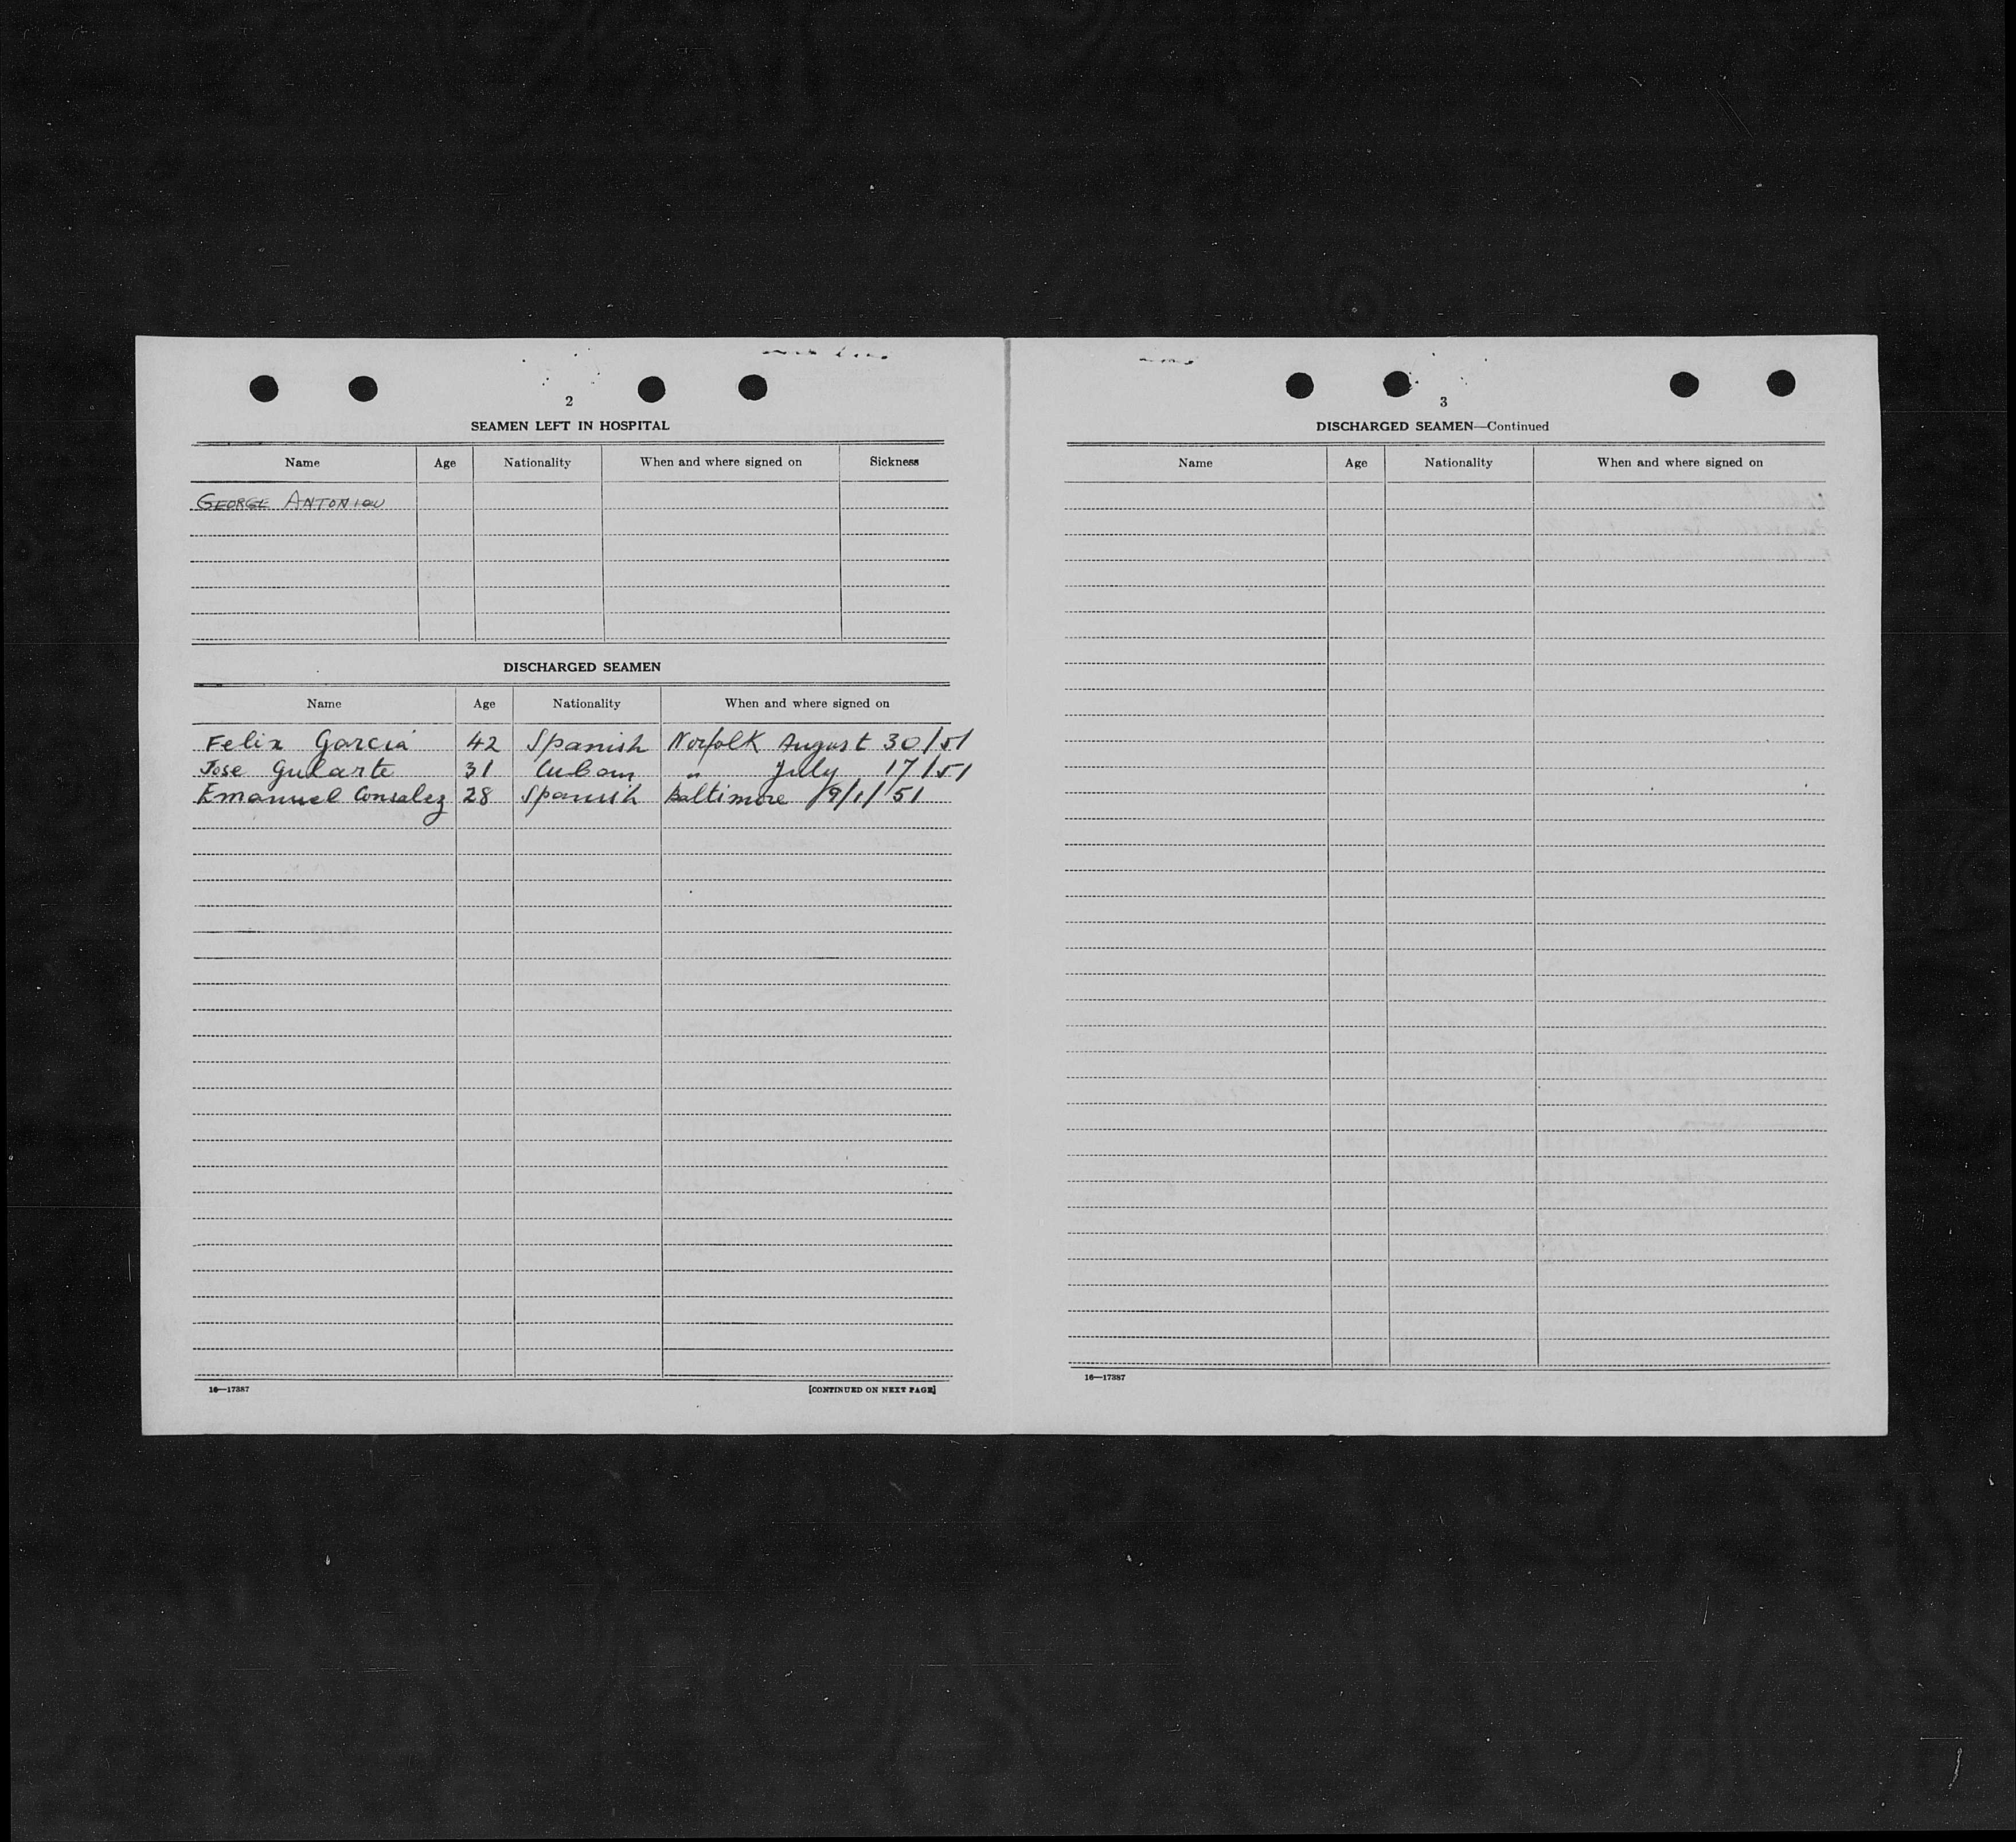 2
SEAMEN LEFT IN HOSPITAL
Name Age Nationality When and where signed on Sickness
GEORGE ANTONIOU
DISCHARGED SEAMEN
Name Age Nationality When and where signed on
Felix Garcia 42 Spanish Norfolk August 30/51
Jose Gularte 31 Cuban " July 17/51
Emanuel Consalez 28 Spanish Baltimore /9/1/51
16—17387 [CONTINUED ON NEXT PAGE]
3
DISCHARGED SEAMEN—Continued
Name Age Nationality When and where signed on
16—17387